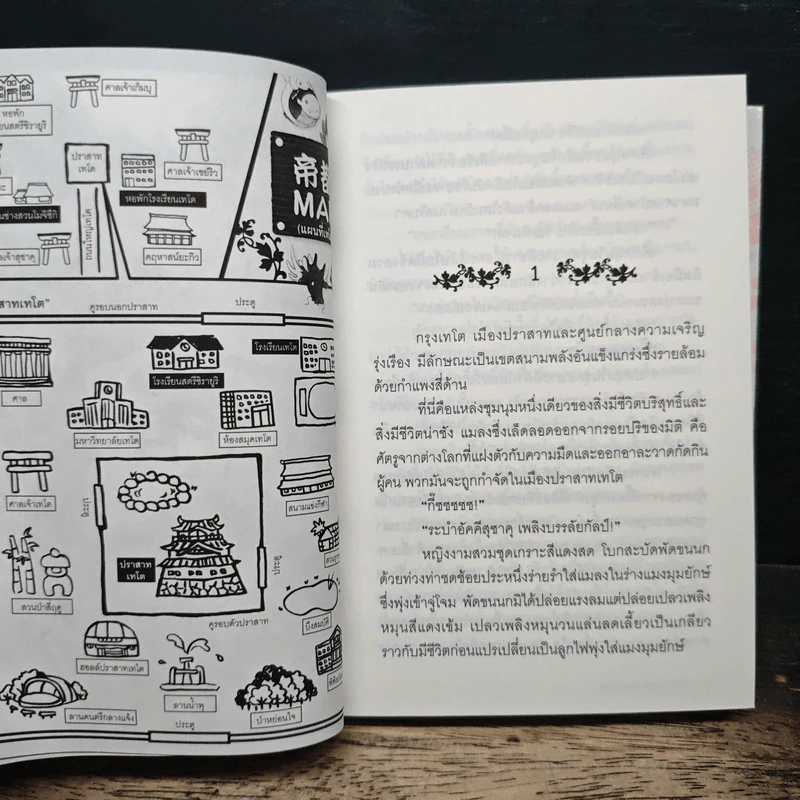 ศาลเจ้าเก็มบุ
หอพัก
ปราสาท
เทโต
ศาลเจ้าเซย์ริว
หอพักโรงเรียนเทโต
ถนนใหญ่เทโต
คฤหาสน์ยะกิว
帝都
MA
คูรอบนอกปราสาท
ประตู
ศาล
โรงเรียนสตรีชิรายุริ
โรงเรียนเทโต
มหาวิทยาลัยเทโต
ห้องสมุดเทโต
ศาลเจ้าเทโต
ประตู
สนามแข่งกีฬา
ปราสาท
เทโต
ประตู
สวนป่าสี่ฤดู
คูรอบตัวปราสาท
บึงสมบัติ
ฮอลล์ปราสาทเทโต
ลานน้ำพุ
ลานดนตรีกลางแจ้ง
ประตู
ป่าหย่อนใจ
1
กรุงเทโต เมืองปราสาทและศูนย์กลางความเจริญ
รุ่งเรือง มีลักษณะเป็นเขตสนามพลังอันแข็งแกร่งซึ่งรายล้อม
ด้วยกำแพงสี่ด้าน
ที่นี่คือแหล่งชุมนุมหนึ่งเดียวของสิ่งมีชีวิตบริสุทธิ์และ
สิ่งมีชีวิตน่าชัง แมลงซึ่งเล็ดลอดออกจากรอยปริของมิติ คือ
ศัตรูจากต่างโลกที่แฝงตัวกับความมืดและออกอาละวาดกัดกิน
ผู้คน พวกมันจะถูกกำจัดในเมืองปราสาทเทโต
“กี๊ซซซซซ!”
“ระบำอัคคีสุซาคุ เพลิงบรรลัยกัลป์!”
หญิงงามสวมชุดเกราะสีแดงสด โบกสะบัดพัดขนนก
ด้วยท่วงท่าชดช้อยประหนึ่งร่ายรำใส่แมลงในร่างแมงมุมยักษ์
ซึ่งพุ่งเข้าจู่โจม พัดขนนกมิได้ปล่อยแรงลมแต่ปล่อยเปลวเพลิง
หมุนสีแดงเข้ม เปลวเพลิงหมุนวนแล่นลดเลี้ยวเป็นเกลียว
ราวกับมีชีวิตก่อนแปรเปลี่ยนเป็นลูกไฟพุ่งใส่แมงมุมยักษ์